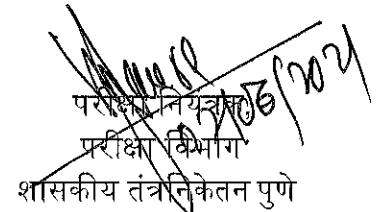 परीक्षा नियंत्रक
परीक्षा विभाग
शासकीय तंत्रनिकेतन पुणे